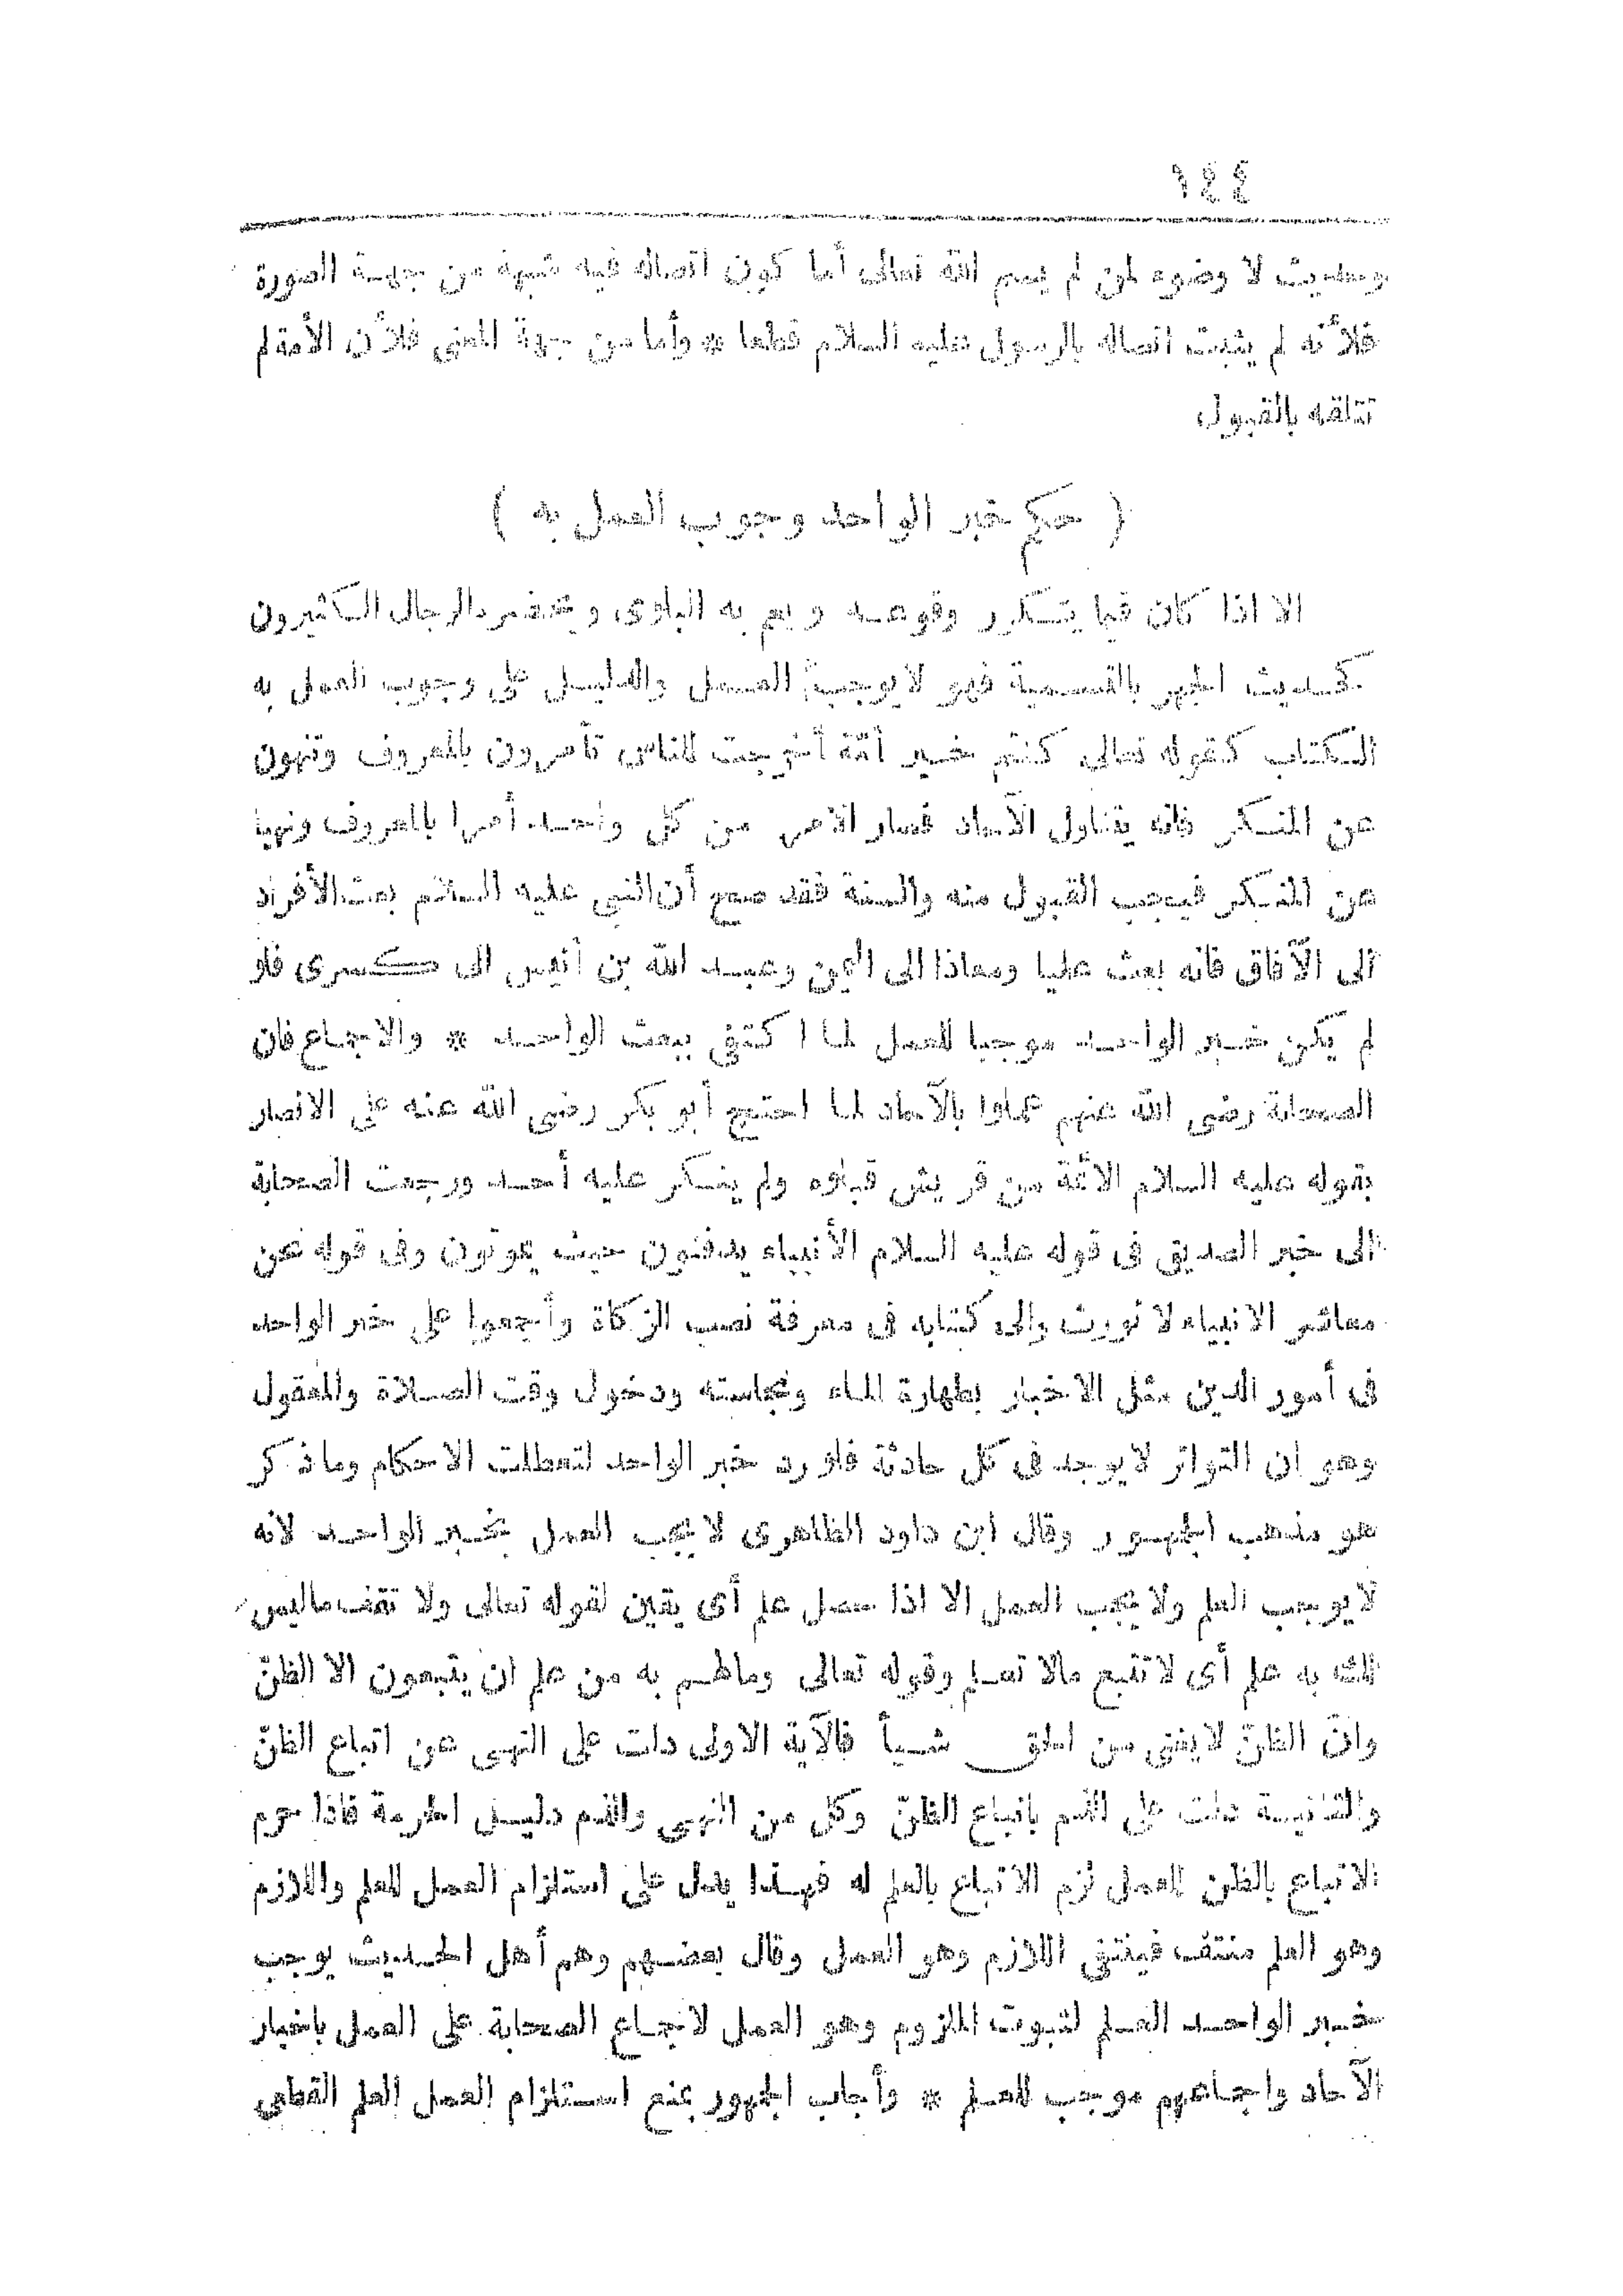 ١٤٤
وحديث لا وضوء لمن لم يسم الله تعالى أما كون اتصاله فيه شبهة من جهة الصورة
فلأنه لم يثبت اتصاله بالرسول عليه السلام قطعا * وأما من جهة المعنى فلأن الأمة لم
تتلقه بالقبول
( حكم خبر الواحد وجوب العمل به )
الا اذا كان فيما يتكرر وقوعه ويعم به البلوى ويحضره الرجال الكثيرون
كحديث الجهر بالتسمية فهو لا يوجب العمل والدليل على وجوب العمل به
الكتاب كقوله تعالى كنتم خير أمّة أخرجت للناس تأمرون بالمعروف وتنهون
عن المنكر فانه يتناول الآحاد فصار الامر من كل واحد أمرا بالمعروف ونهيا
عن المنكر فيجب القبول منه والسنة فقد صح أن النبي عليه السلام بعث الأفراد
الى الآفاق فانه بعث عليا ومعاذا الى اليمن وعبد الله بن أنيس الى كسرى فلو
لم يكن خبر الواحد موجبا للعمل لما اكتفى ببعث الواحد * والاجماع فان
الصحابة رضى الله عنهم عملوا بالآحاد لما احتج أبو بكر رضى الله عنه على الانصار
بقوله عليه السلام الائمّة من قريش قبلوه ولم ينكر عليه أحد ورجعت الصحابة
الى خبر الصديق فى قوله عليه السلام الأنبياء يدفنون حيث يموتون وفى قوله نحن
معاشر الانبياء لا نورث والى كتابه فى معرفة نصب الزكاة وأجمعوا على خبر الواحد
فى أمور الدين مثل الاخبار بطهارة الماء ونجاسته ودخول وقت الصلاة والمعقول
وهو ان التواتر لا يوجد فى كل حادثة فلو رد خبر الواحد لتعطلت الاحكام وما ذكر
هو مذهب الجمهور وقال ابن داود الظاهرى لا يجب العمل بخبر الواحد لانه
لا يوجب العلم ولا يجب العمل الا اذا حصل علم أى يقين لقوله تعالى ولا تقف ماليس
لك به علم أى لا تتبع مالا تعلم وقوله تعالى ومالهم به من علم ان يتبعون الا الظنّ
وانّ الظنّ لا يغنى من الحق شيأ فالآية الاولى دلت على النهى عن اتباع الظنّ
والثانية دلت على الذم باتباع الظنّ وكل من النهى والذم دليل الحرمة فاذا حرم
الاتباع بالظن للعمل لزم الاتباع بالعلم له فهذا يدل على استلزام العمل للعلم واللازم
وهو العلم منتف فينتفى اللازم وهو العمل وقال بعضهم وهم أهل الحديث يوجب
خبر الواحد العلم لثبوت الملزوم وهو العمل لاجماع الصحابة على العمل باخبار
الآحاد واجماعهم موجب للعلم * وأجاب الجمهور بمنع استلزام العمل العلم القطعى